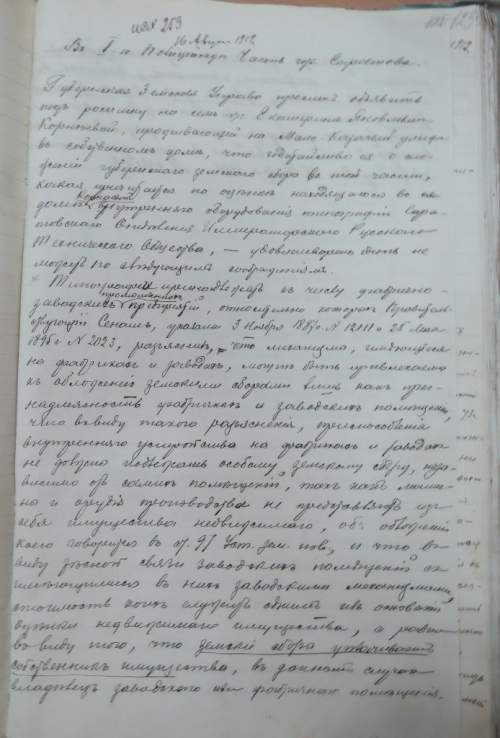 16 Август 1912
Въ I ю Полицейскую Часть гор. Саратова.
1912.
Губернская Земская Управа проситъ объявить
подъ росписку на семъ гр. Екатеринѣ Яковлевнѣ
Корнѣевой, проживающей на Мало-Казачьей улицѣ
въ собственномъ домѣ, что ходатайство ея о сло-
женіи губернскаго земскаго сбора въ той части,
какая причитается по оцѣнкѣ находящагося въ ея
домѣ внутренняго оборудованія типографіи Сара-
товскаго Отдѣленія Императорскаго Русскаго
Техническаго Общества, — удовлетворено быть не
можетъ по слѣдующимъ соображеніямъ.
Типографіи принадлежатъ къ числу фабрично-
заводскихъ промышленныхъ предпріятій, относительно которыхъ Правитель-
ствующій Сенатъ, указами 3 Ноября 1887 г. № 12111 и 26 Мая
1895 г. № 2023, разъяснилъ, что механизмы, имѣющіеся
на фабрикахъ и заводахъ, могутъ быть привлекаемы
къ обложенію земскими сборами лишь какъ при-
надлежность фабричныхъ и заводскихъ помѣщеній,
что въ виду такого разъясненія, приспособленія
внутренняго устройства на фабрикахъ и заводахъ
не должны подлежать особому земскому сбору, неза-
висимо отъ самихъ помѣщеній, такъ какъ маши-
ны и орудія производства не представляютъ изъ
себя имущества недвижимаго, объ обложеніи
коего говорится въ ст. 97 Уст. зем. пов., и что въ
виду тѣсной связи заводскихъ помѣщеній съ
имѣющимися въ нихъ заводскими механизмами,
стоимость коихъ служитъ однимъ изъ основаній
оцѣнки недвижимаго имущества, а равно
въ виду того, что земскій сборъ уплачиваетъ
собственникъ имущества, въ данномъ случаѣ
владѣлецъ заводскаго или фабричнаго помѣщенія,